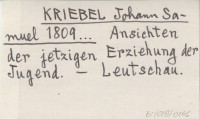 KRIEBEL Johann Sa-
muel 1809... Ansichten
der jetzigen Erziehung der
Jugend. — Leutschau.